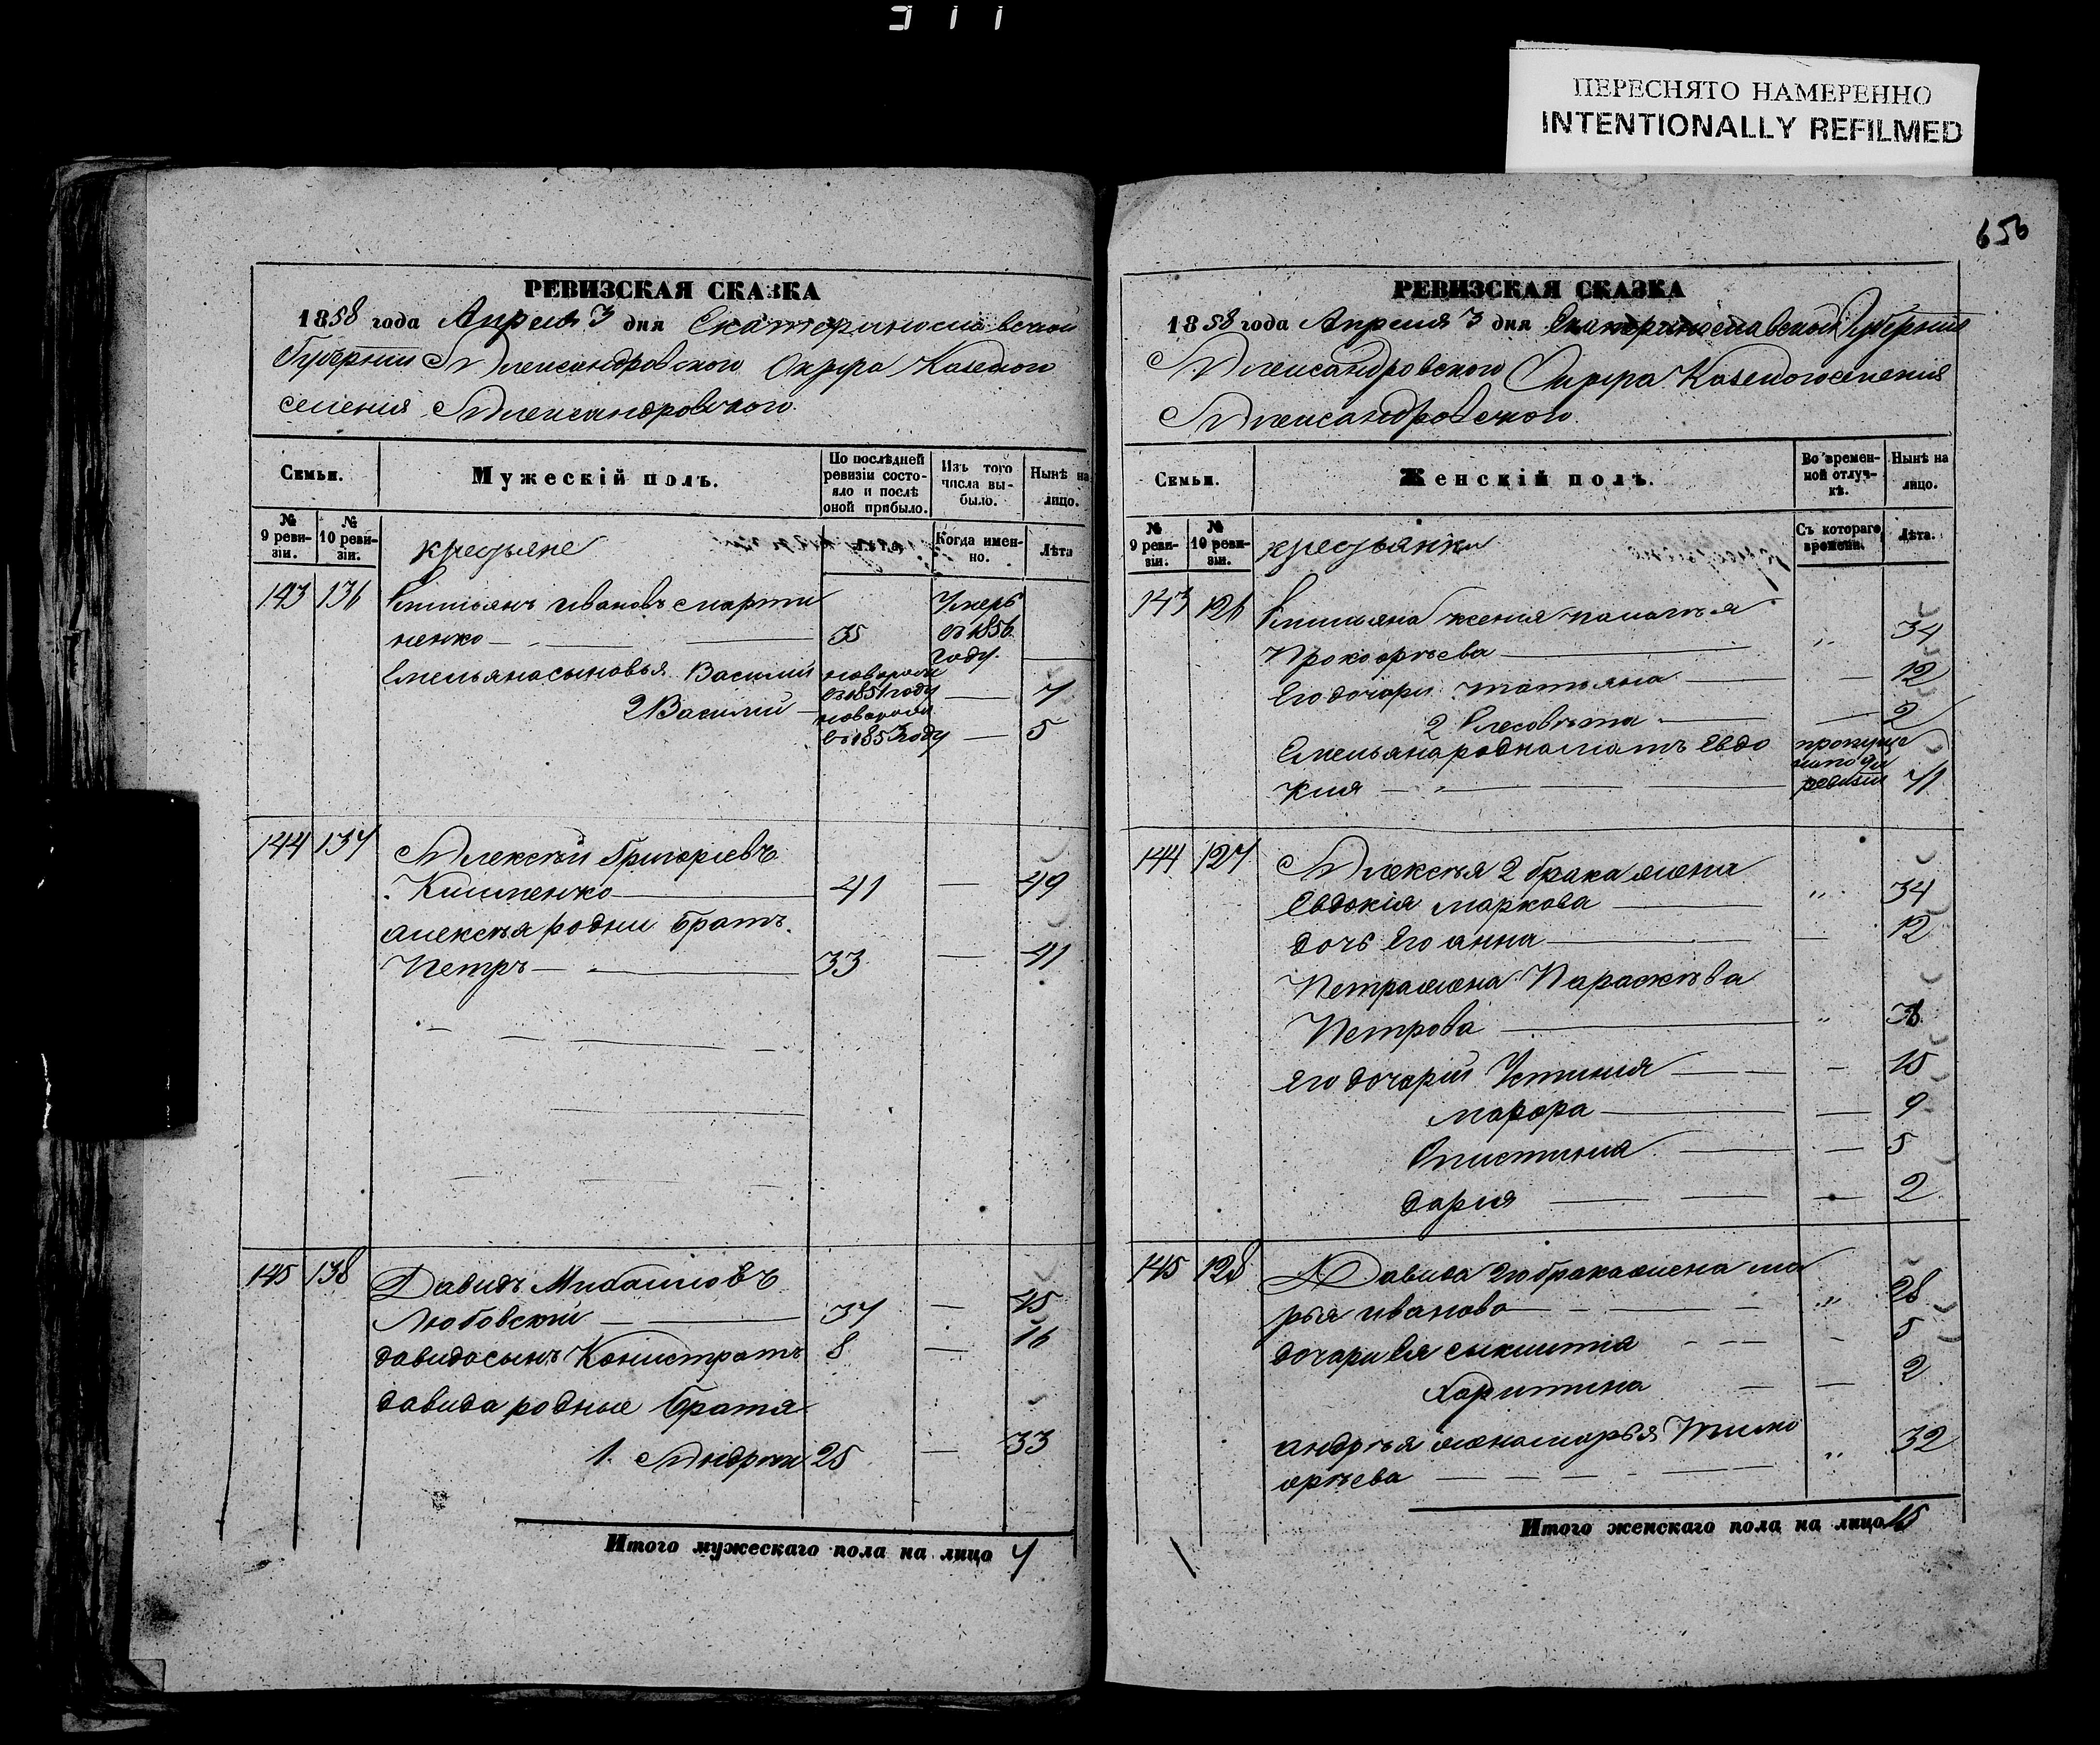 ПЕРЕСНЯТО НАМЕРЕННО
INTENTIONALLY REFILMED
656
РЕВИЗСКАЯ СКАЗКА
1858 года Апреля 3 дня Екатеринославской
Губернии Александровского Округа Казеного
селения Александровского.
Семьи.
Мужескій полъ.
По послѣдней ревизіи состояло и послѣ оной прибыло.
Изъ того числа выбыло.
Нынѣ на лицо.
№ 9 ревизіи.
№ 10 ревизіи.
крестьяне
Когда именно.
Лѣта
143 136 Емильянъ Ивановъ Марти
ненко 35 Умеръ въ 1856 году.
Емельяна сыновья Василий новорож въ 1851 году 7
2 Василий новорож въ 1853 году 5
144 137 Алексѣй Григоріевъ
Клименко 41 49
алексѣя родни братъ.
Петръ 33 41
145 138 Давидъ Михаиловъ
Любовский 37 45
давида сынъ Канистратъ 8 16
давида родные братя
1. Андрѣи 25 33
Итого мужескаго пола на лицо 7
РЕВИЗСКАЯ СКАЗКА
1858 года Апреля 3 дня Екатеринославской Губернии
Александровского Округа Казеного селения
Александровского.
Семьи.
Женскій полъ.
Во временной отлучкѣ.
Нынѣ на лицо.
№ 9 ревизіи.
№ 10 ревизіи.
крестьянки
Съ котораго времени.
Лѣта.
143 126 Емильяна жена
Прокофѣева 34
Его дочари татьяна 12
2 Елесовѣта 2
Емельяна родна мать Евдо
кия ревизии 71
144 127 Алексѣя 2 брака жена
Евдокія маркова 34
дочь Его анна 12
Петра жена Параскѣва
Петрова 38
Его дочарии Устиния 15
марфра 9
Опистиния 5
дария 2
145 128 Давида 2го брака жена ма
рья иванова 28
дочари Ея 5
Харитина 2
андрѣя жена марья Тимо
фрѣева 32
Итого женскаго пола на лицо 15